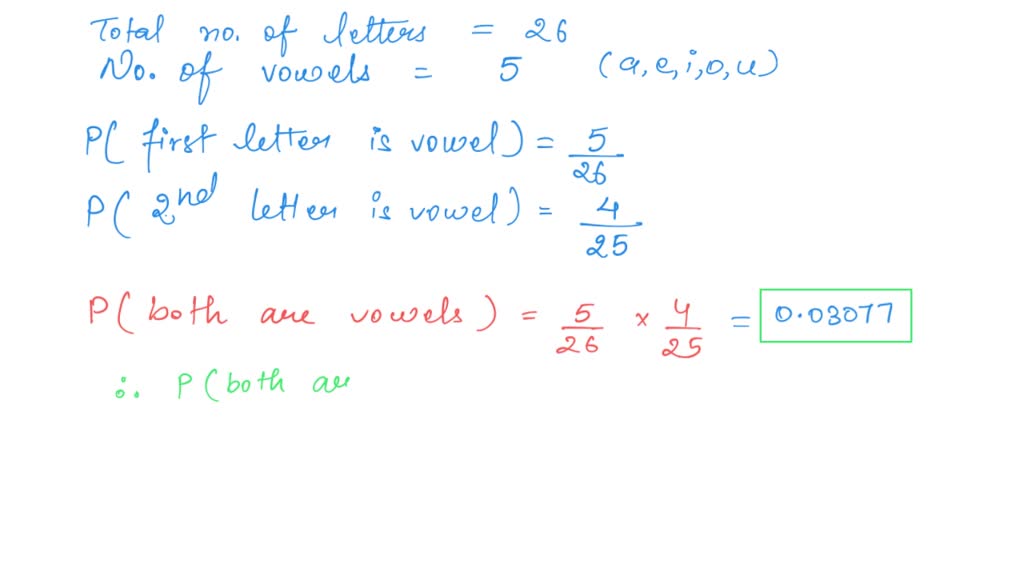 Total no. of letters = 26
No. of vowels = 5 (a, e, i, o, u)
P( first letter is vowel) = 5/26
P( 2nd letter is vowel) = 4/25
P( both are vowels) = 5/26 × 4/25 = 0.03077
∴ P(both are